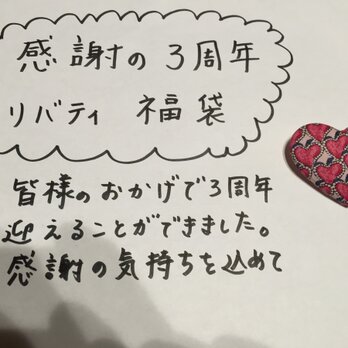 感謝の3周年
リバティ 福袋
皆様のおかげで3周年
迎えることができました。
感謝の気持ちを込めて